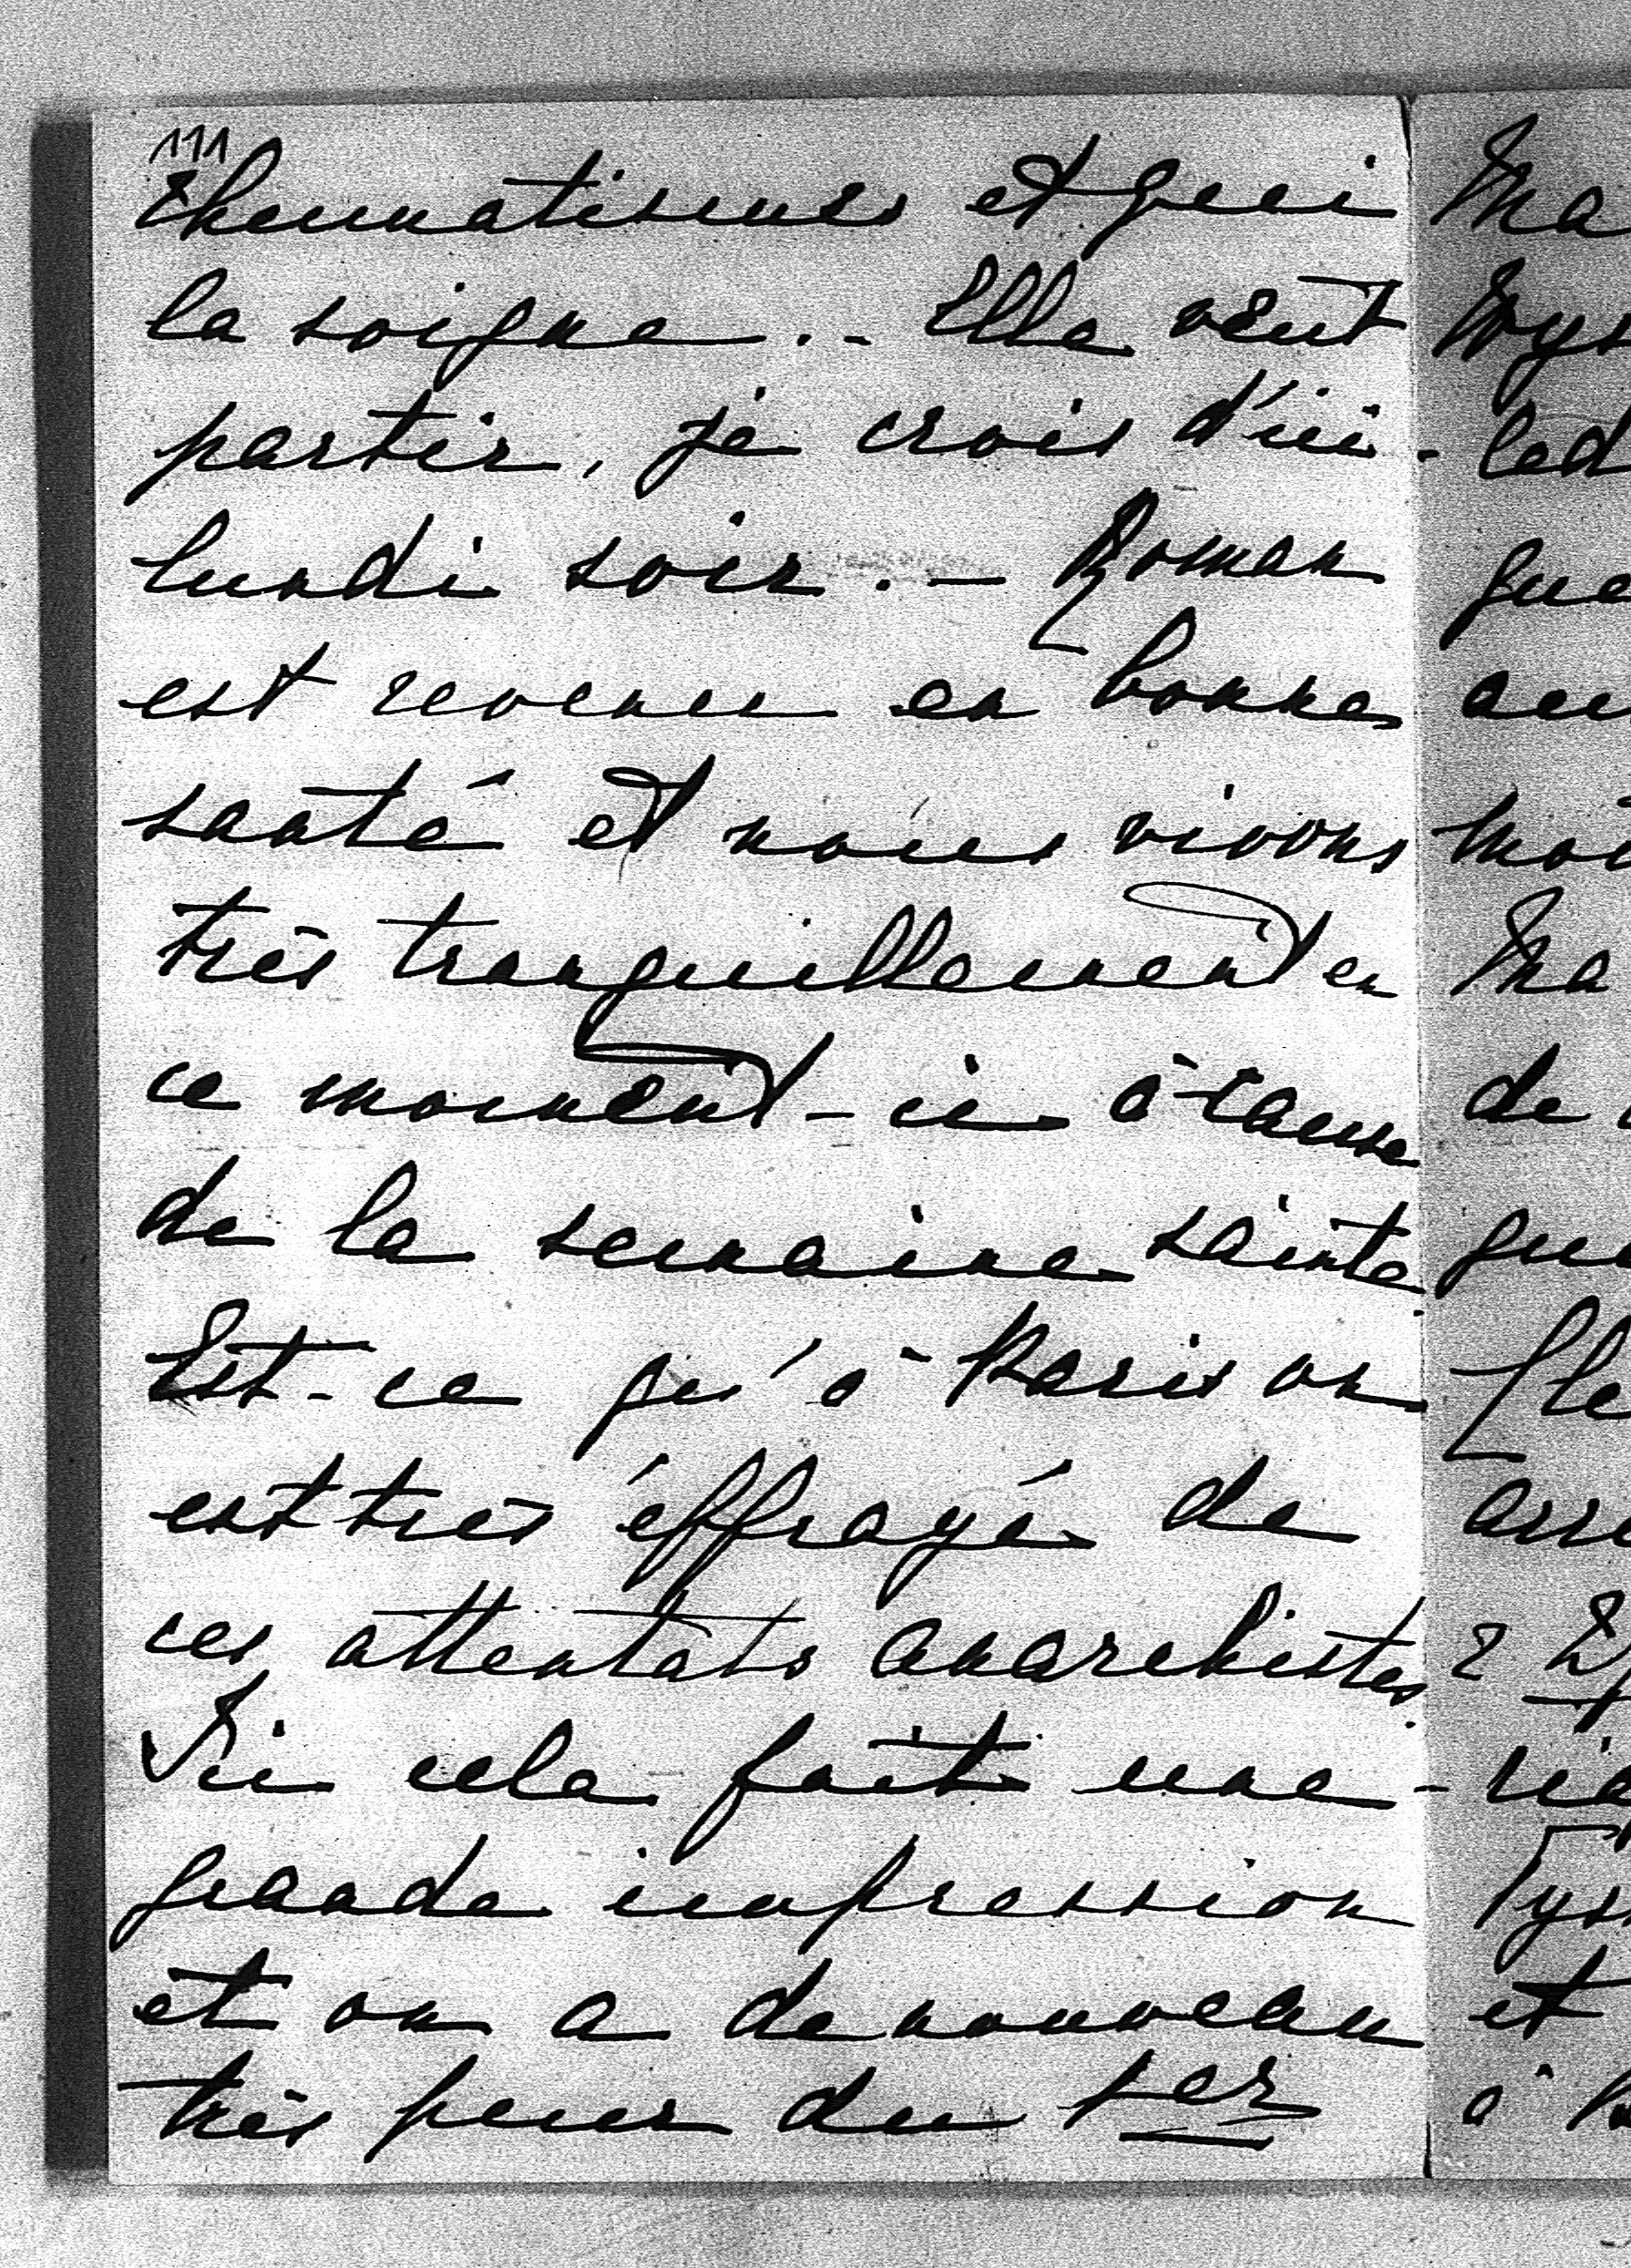 111
rhumatismes et qui
la soigne. - Elle veut
partir, je crois d'ici
lundi soir. - Roman
est revenu en bonne
santé et nous vivons
très tranquillement en
ce moment-ci à cause
de la semaine sainte.
Est-ce qu'à Paris on
est très éffrayé de
ces attentats anarchistes.
Ici cela fait une
grande impression
et on a de nouveau
très peur du 1er